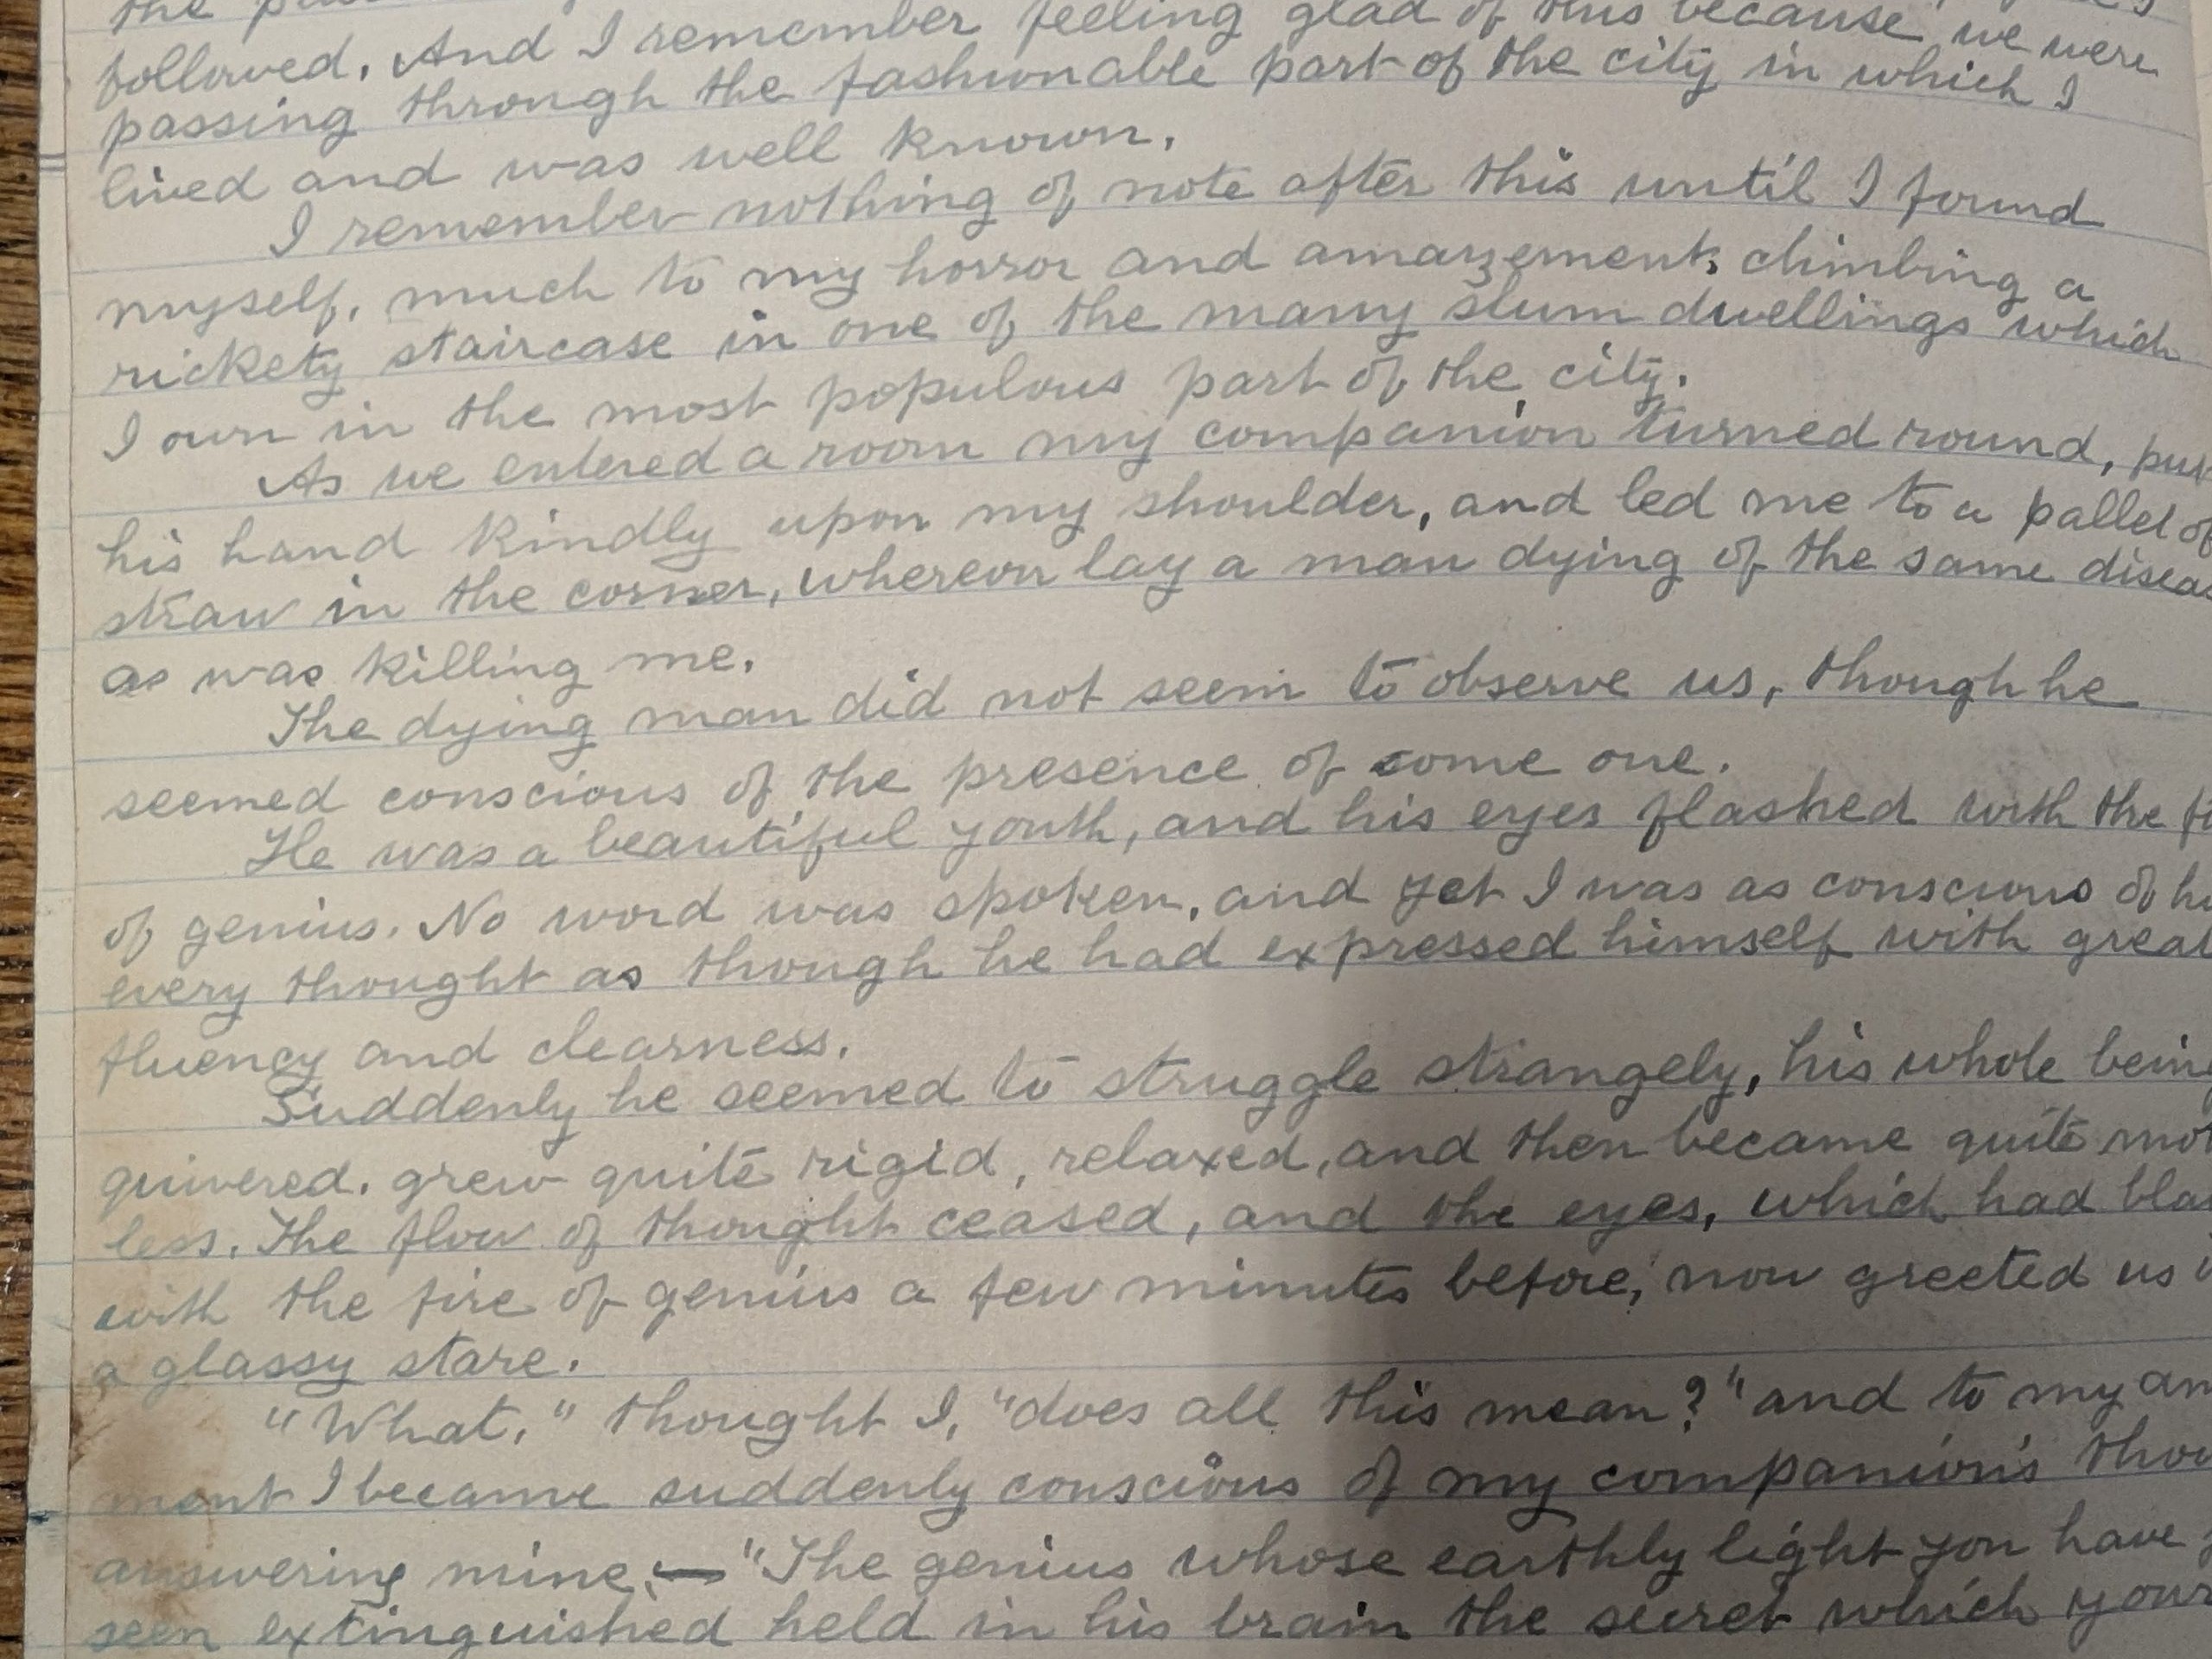 followed. And I remember feeling glad of this because we were
passing through the fashionable part of the city in which I
lived and was well known.
I remember nothing of note after this until I found
myself, much to my horror and amazement, climbing a
rickety staircase in one of the many slum dwellings which
I own in the most populous part of the city.
As we entered a room my companion turned round, put
his hand kindly upon my shoulder, and led me to a pallet of
straw in the corner, whereon lay a man dying of the same diseas
as was killing me.
The dying man did not seem to observe us, though he
seemed conscious of the presence of some one.
He was a beautiful youth, and his eyes flashed with the
of genius. No word was spoken, and yet I was as conscious of
every thought as though he had expressed himself with great
fluency and clearness.
Suddenly he seemed to struggle strangely, his whole being
quivered, grew quite rigid, relaxed, and then became quite mot
less. The flow of thought ceased, and the eyes, which had bla
with the fire of genius a few minutes before, now greeted us
a glassy stare.
"What," thought I, "does all this mean?" and to my am
ment I became suddenly conscious of my companion's thou
answering mine, — "The genius whose earthly light you have
seen extinguished held in his brain the secret which your